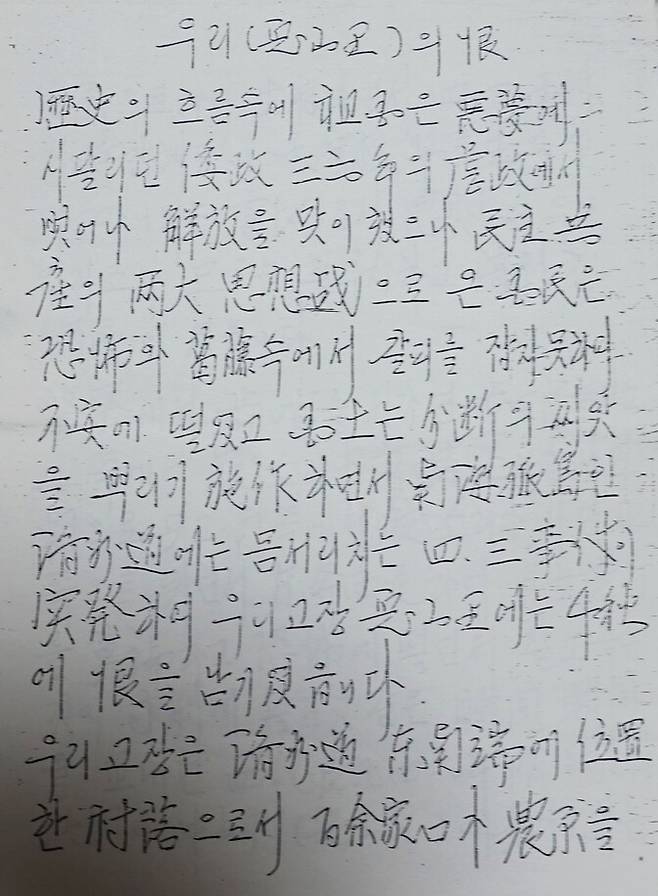 우리(兎山里)의 恨
歷史의 흐름속에 祖国은 悪夢에
시달리던 倭政 三六年의 虐政에서
벗어나 解放을 맞이 했으나 民主 共
産의 両大 思想战으로 온 国民은
恐怖와 葛藤속에서 갈피를 잡지못하며
不安에 떨었고 国土는 分断의 씨앗
을 뿌리기 始作하면서 南海孤島인
済州道에는 몸서리치는 四.三事件이
突発하여 우리고장 兎山里에는 千秋
에 恨을 남기었읍니다
우리 고장은 済州道 东南端에 位置
한 村落으로서 百余家口가 農京을